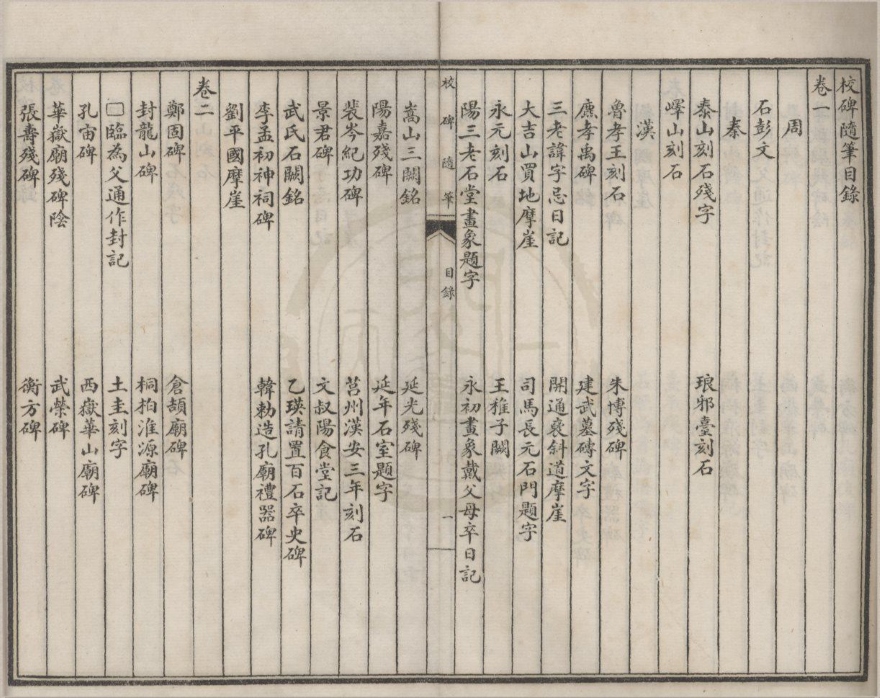 校碑隨筆目錄
卷一
周
石彭文
秦
泰山刻石殘字　琅邪臺刻石
嶧山刻石
漢
魯孝王刻石　朱博殘碑
麃孝禹碑　建武墓磚文字
三老諱字忌日記　開通褒斜道摩崖
大吉山買地摩崖　司馬長元石門題字
永元刻石　王稚子闕
陽三老石堂畫象題字　永初畫象戴父母卒日記
校碑隨筆　目錄　一
嵩山三闕銘　延光殘碑
陽嘉殘碑　延年石室題字
裴岑紀功碑　莒州漢安三年刻石
景君碑　文叔陽食堂記
武氏石闕銘　乙瑛請置百石卒史碑
李孟初神祠碑　韓勑造孔廟禮器碑
劉平國摩崖
卷二
鄭固碑　倉頡廟碑
封龍山碑　桐柏淮源廟碑
□臨為父通作封記　土圭刻字
孔宙碑　西嶽華山廟碑
華嶽廟殘碑陰　武榮碑
張壽殘碑　衡方碑